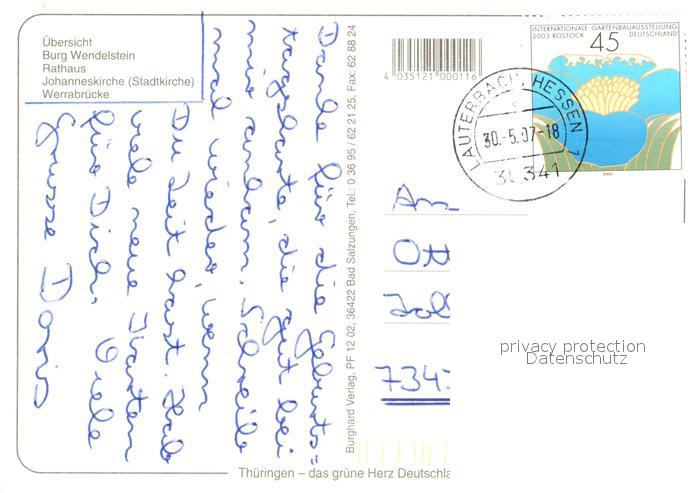 Übersicht
Burg Wendelstein
Rathaus
Johanneskirche (Stadtkirche)
Werrabrücke
Danke für die Geburts=
tagskarte, die gut bei
mir ankam. Schreibe
mal wieder, wenn
Du Zeit hast. Hab
viele neue
für Dich. Viele
Grüsse Doris
Burghard Verlag, PF 12 02, 36422 Bad Salzungen, Tel.: 0 36 95 / 62 21 25, Fax: 62 88 24
4 035121 000116
INTERNATIONALE GARTENBAUAUSSTELLUNG
2003 ROSTOCK DEUTSCHLAND
45
2003
LAUTERBACH, HESSEN 1
c
30.-5.07-18
36341
An
Ott
734
privacy protection
Datenschutz
Thüringen – das grüne Herz Deutschla